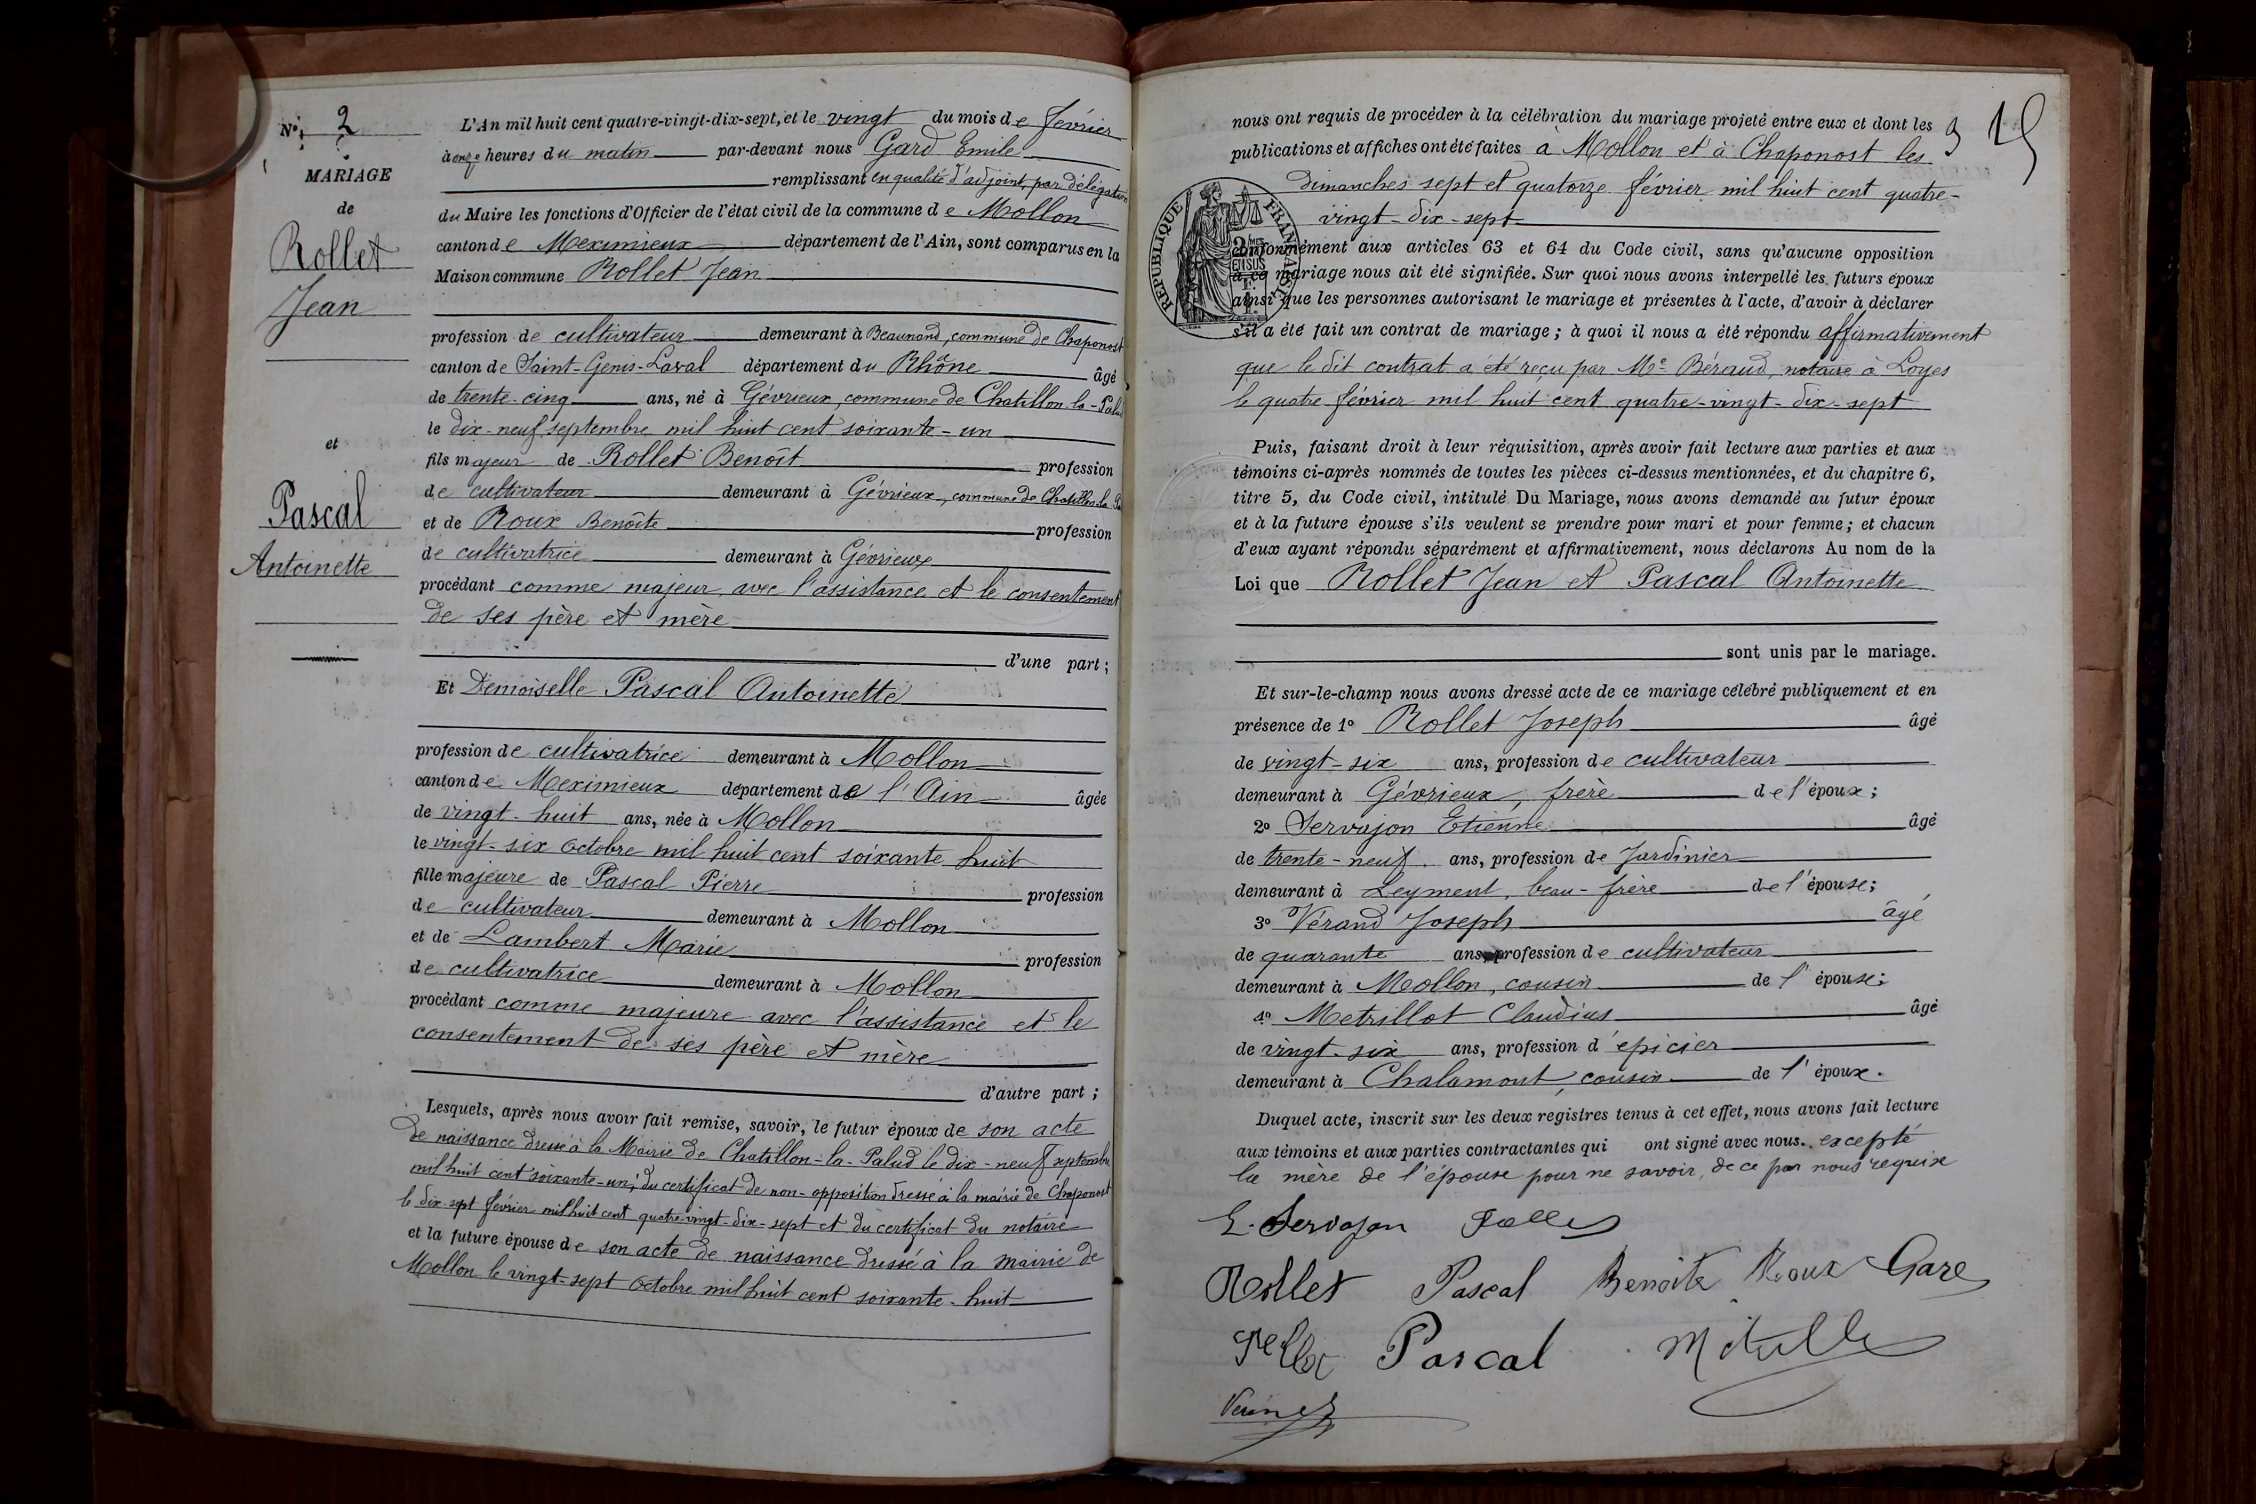 N° 2
MARIAGE
de
Rollet
Jean
et
Pascal
Antoinette
L'An mil huit cent quatre-vingt-dix-sept, et le vingt du mois de février
à onze heures du matin par-devant nous Gard Emile
remplissant en qualité d'adjoint, par délégation
du Maire les fonctions d'Officier de l'état civil de la commune de Mollon
canton de Meximieux département de l'Ain, sont comparus en la
Maison commune Rollet Jean
profession de cultivateur demeurant à Beaunand, commune de Chaponost
canton de Saint-Genis-Laval département du Rhône âgé
de trente-cinq ans, né à Gévrieux, commune de Chatillon-la-Palud
le dix-neuf septembre mil huit cent soixante-un
fils majeur de Rollet Benoît profession
de cultivateur demeurant à Gévrieux, commune de Chatillon-la-Pa
et de Roux Benoîte profession
de cultivatrice demeurant à Gévrieux
procédant comme majeur avec l'assistance et le consentement
de ses père et mère
d'une part;
Et Demoiselle Pascal Antoinette
profession de cultivatrice demeurant à Mollon
canton de Meximieux département de l'Ain âgée
de vingt-huit ans, née à Mollon
le vingt-six octobre mil huit cent soixante huit
fille majeure de Pascal Pierre profession
de cultivateur demeurant à Mollon
et de Lambert Marie profession
de cultivatrice demeurant à Mollon
procédant comme majeure avec l'assistance et le
consentement de ses père et mère
d'autre part;
Lesquels, après nous avoir fait remise, savoir, le futur époux de son acte
de naissance dressé à la Mairie de Chatillon-la-Palud le dix-neuf septembre
mil huit cent soixante-un; du certificat de non-opposition dressé à la mairie de Chaponost
le dix-sept février mil huit cent quatre-vingt-dix-sept et du certificat du notaire
et la future épouse de son acte de naissance dressé à la mairie de
Mollon le vingt-sept octobre mil huit cent soixante-huit
15
nous ont requis de procéder à la célébration du mariage projeté entre eux et dont les
publications et affiches ont été faites à Mollon et à Chaponost les
dimanches sept et quatorze février mil huit cent quatre-
vingt-dix-sept
RÉPUBLIQUE FRANÇAISE
conformément aux articles 63 et 64 du Code civil, sans qu'aucune opposition
à ce mariage nous ait été signifiée. Sur quoi nous avons interpellé les futurs époux
ainsi que les personnes autorisant le mariage et présentes à l'acte, d'avoir à déclarer
s'il a été fait un contrat de mariage; à quoi il nous a été répondu affirmativement
que le dit contrat a été reçu par Me Béraud, notaire à Loyes
le quatre février mil huit cent quatre-vingt-dix-sept
Puis, faisant droit à leur réquisition, après avoir fait lecture aux parties et aux
témoins ci-après nommés de toutes les pièces ci-dessus mentionnées, et du chapitre 6,
titre 5, du Code civil, intitulé Du Mariage, nous avons demandé au futur époux
et à la future épouse s'ils veulent se prendre pour mari et pour femme; et chacun
d'eux ayant répondu séparément et affirmativement, nous déclarons Au nom de la
Loi que Rollet Jean et Pascal Antoinette
sont unis par le mariage.
Et sur-le-champ nous avons dressé acte de ce mariage célébré publiquement et en
présence de 1° Rollet Joseph âgé
de vingt-six ans, profession de cultivateur
demeurant à Gévrieux, frère de l'époux;
2° Servajon Etienne âgé
de trente-neuf ans, profession de Jardinier
demeurant à Leyment, beau-frère de l'épouse;
3° Vérand Joseph âgé
de quarante ans, profession de cultivateur
demeurant à Mollon, cousin de l'épouse;
4° Metrillot Claudius âgé
de vingt-six ans, profession d'épicier
demeurant à Chalamont, cousin de l'époux.
Duquel acte, inscrit sur les deux registres tenus à cet effet, nous avons fait lecture
aux témoins et aux parties contractantes qui ont signé avec nous. excepté
la mère de l'épouse pour ne savoir, de ce par nous requise
E. Servajon
Rollet Pascal Benoite Roux Gard
Pascal